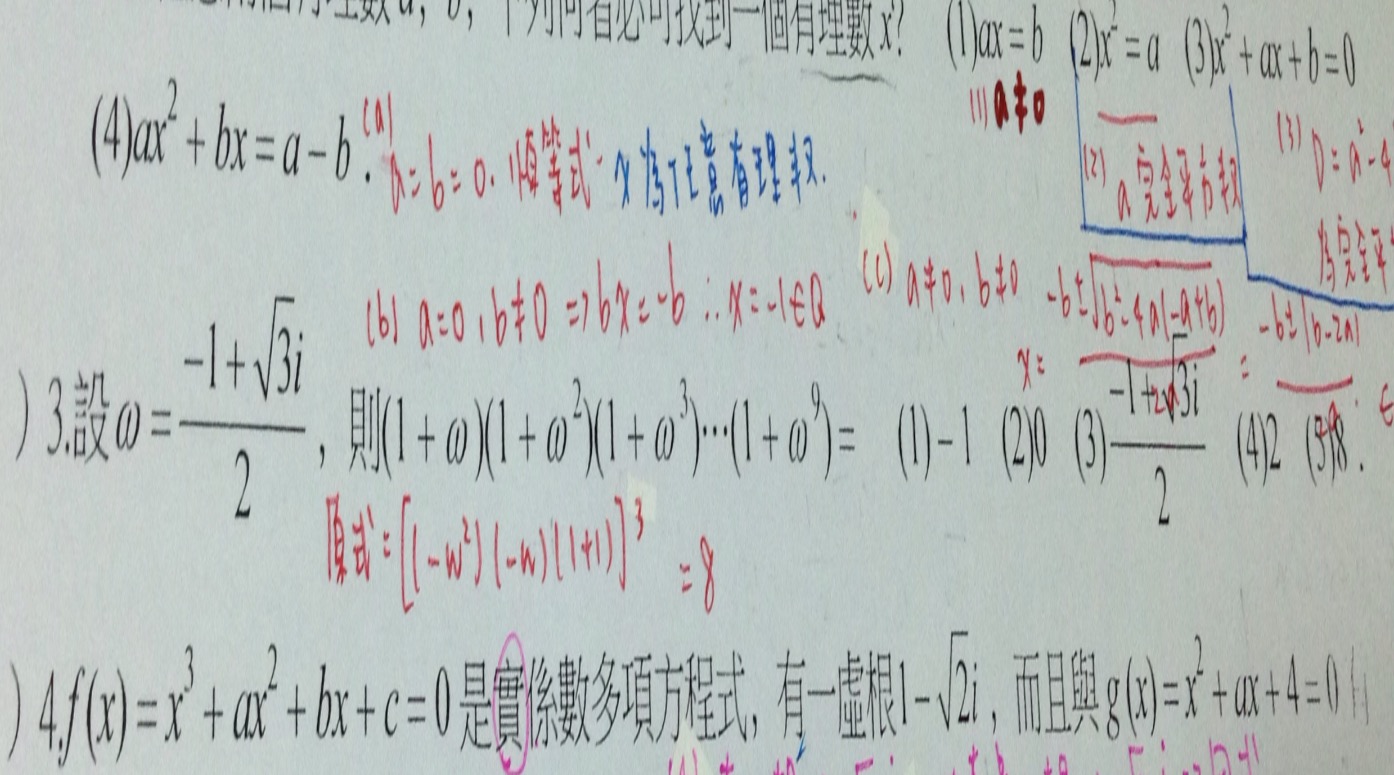 下列何者必可找到一個有理數x? (1)ax=b (2)x²=a (3)x²+ax+b=0
(1) a≠0
(4)ax²+bx=a-b.
(a) a=b=0. 恆等式 x為任意有理数.
(2) a完全平方数
(3) D=a²-4
為完全平
(b) a=0, b≠0 ⇒bx=-b ∴x=-1∈Q
(c) a≠0, b≠0 x= (-b±√(b²-4a(-a+b)))/2a = (-b±|b-2a|)/2a ∈
) 3.設ω=(-1+√3i)/2, 則(1+ω)(1+ω²)(1+ω³)…(1+ω⁹)= (1)-1 (2)0 (3)(-1+√3i)/2 (4)2 (5)8.
原式=[(-w²)(-w)(1+1)]³ =8
) 4.f(x)=x³+ax²+bx+c=0是實係數多項方程式, 有一虛根1-√2i, 而且與g(x)=x²+ax+4=0